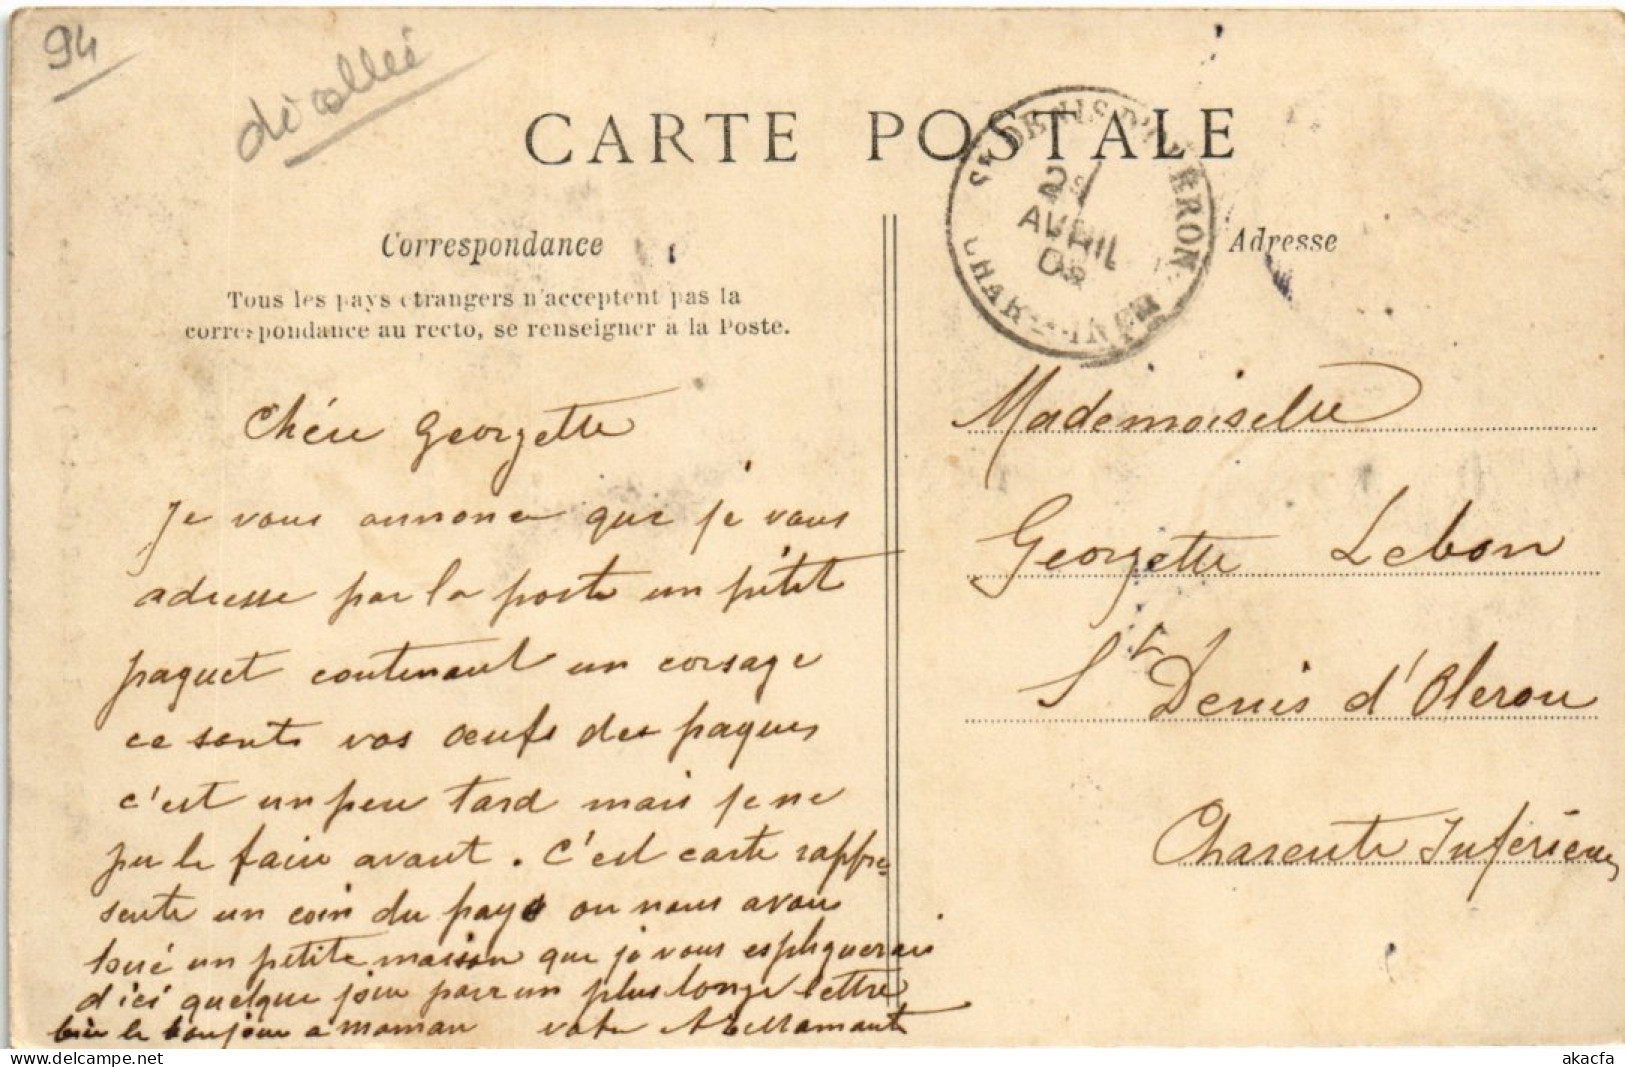 94
décollée
CARTE POSTALE
ST DENIS D'OLERON
21
AVRIL
08
CHAR.-INFRE
Correspondance
Adresse
Tous les pays étrangers n'acceptent pas la
correspondance au recto, se renseigner à la Poste.
Chére Georgette
Je vous annonce que je vous
adresse par la poste un pétit
paquet contenant un corsage
ce sonts vos œufs des paques
c'est un peu tard mais je ne
pu le faire avant. C'est carte rappre
sente un coin du pays ou nous avons
loué un petite maison que je vous espliquerais
d'ici quelque jour par un plus longe lettre
bien le bonjour a maman votre
Mademoiselle
Georgette Lebon
St Denis d'Oleron
Charente Inférieure
akacfa